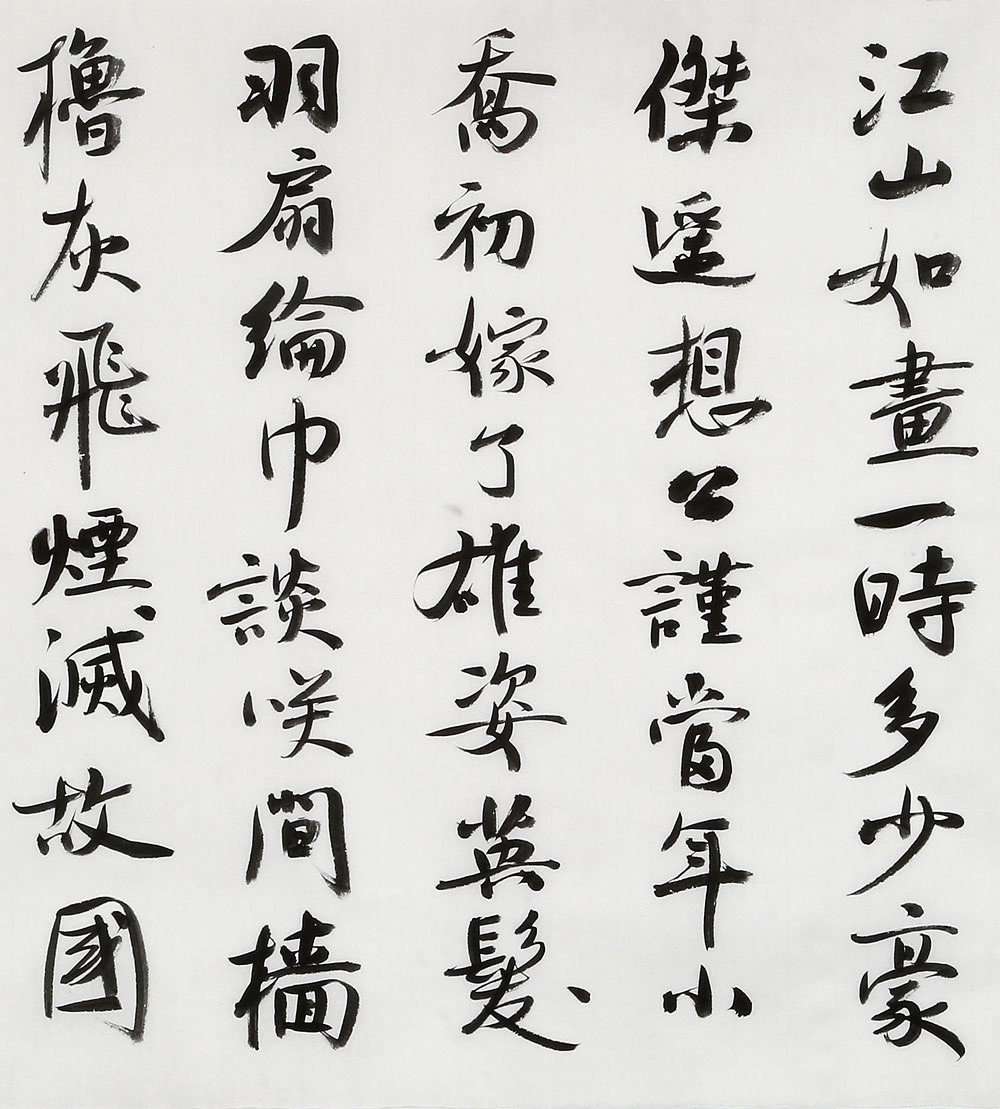 江山如畫一時多少豪
傑遥想公謹當年小
喬初嫁了雄姿英髮
羽扇綸巾談咲間檣
櫓灰飛煙滅故國